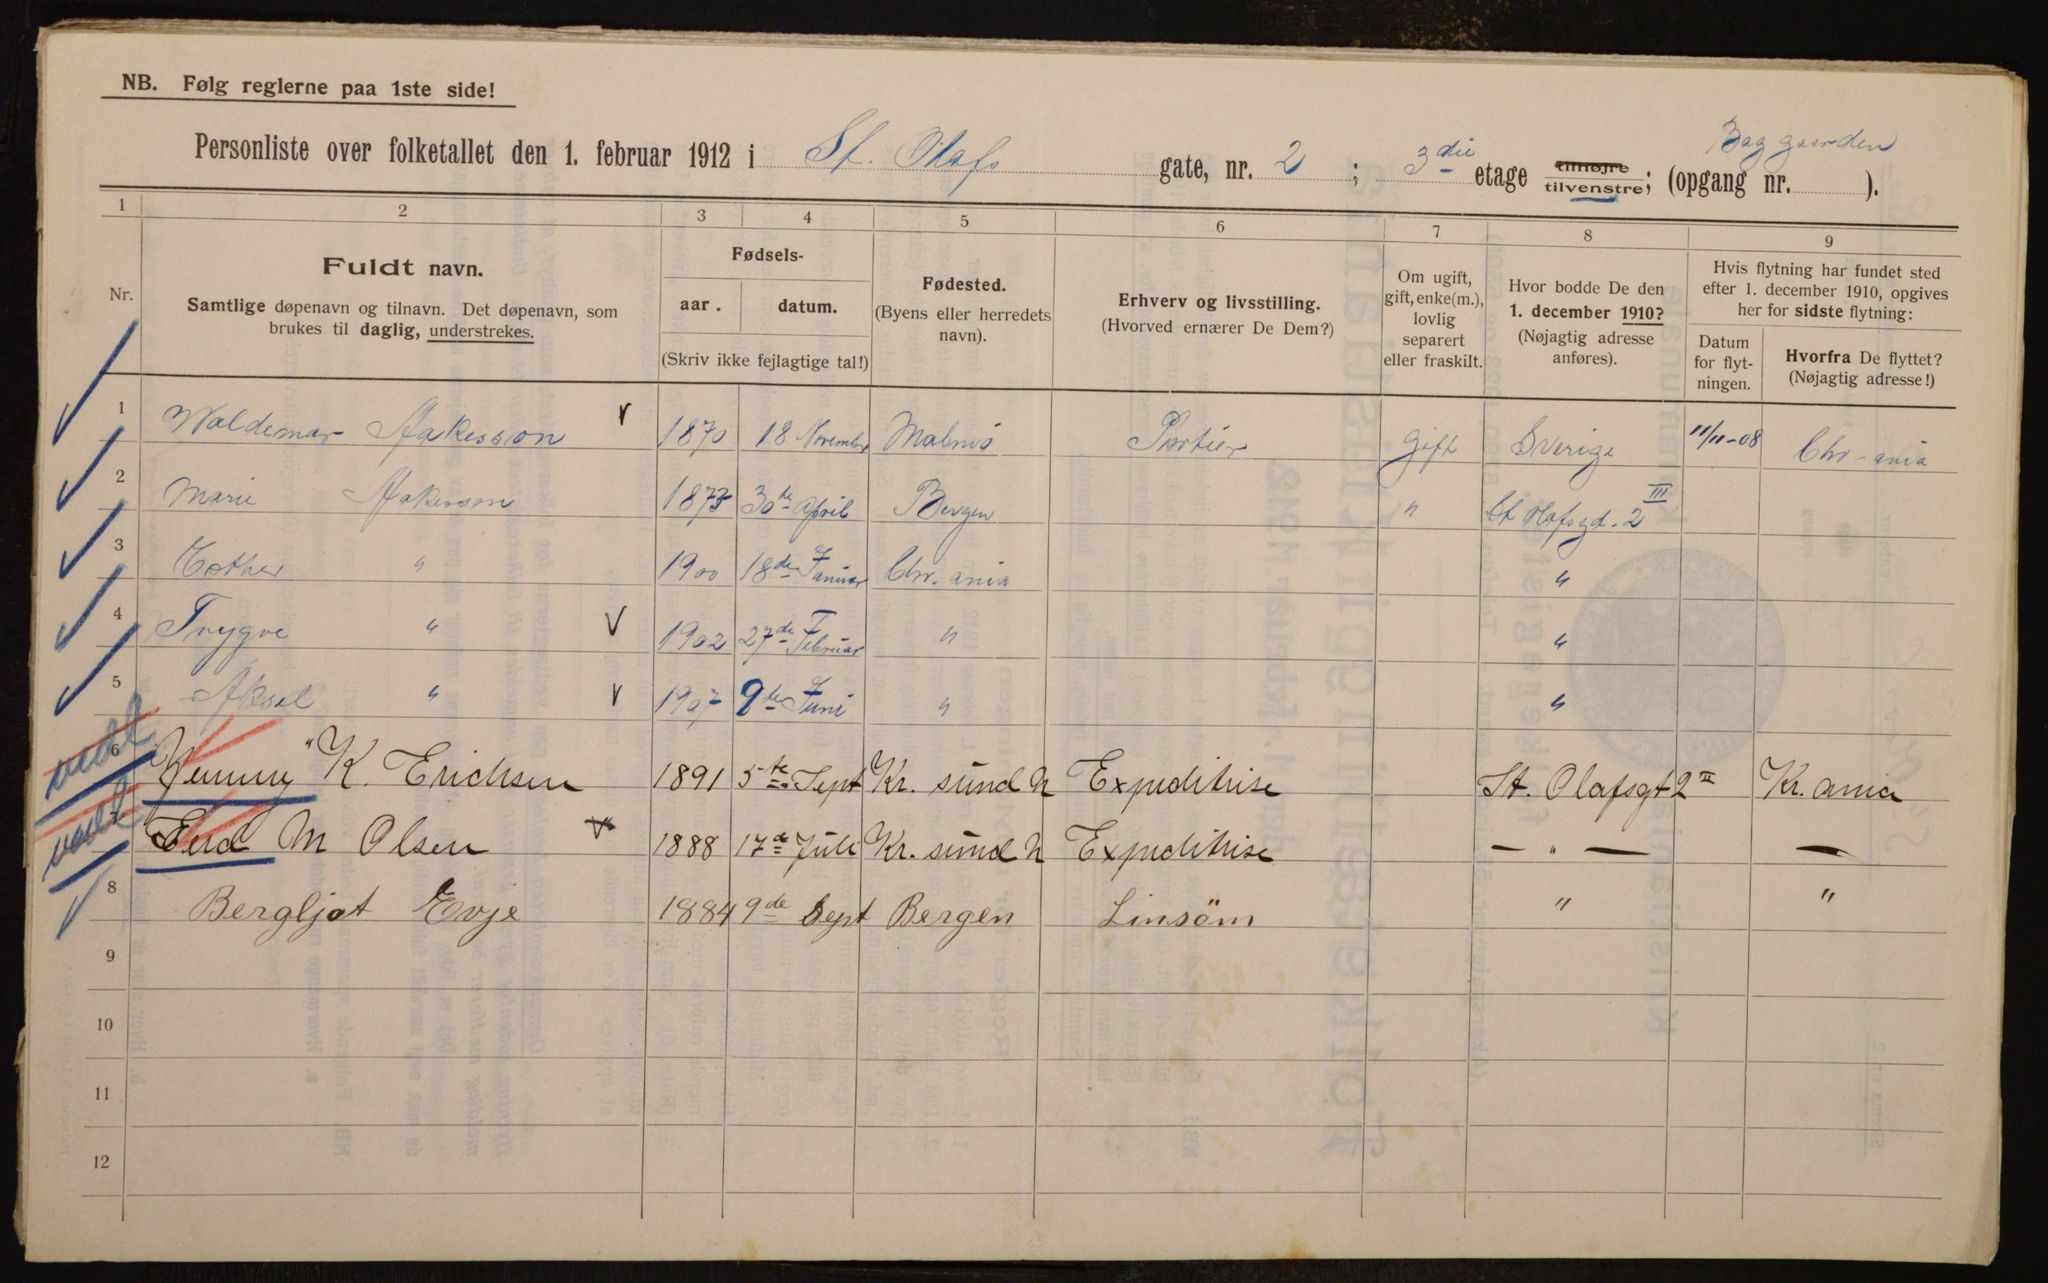 NB. Følg reglerne paa 1ste side!
Baggaarden
Personliste over folketallet den 1. februar 1912 i St. Olafs gate, nr. 2 ; 3die etage tilhøjre tilvenstre; (opgang nr. ).
1 2 3 4 5 6 7 8 9
Nr.
Fuldt navn.
Samtlige døpenavn og tilnavn. Det døpenavn, som
brukes til daglig, understrekes.
Fødsels-
aar. datum.
(Skriv ikke fejlagtige tal!)
Fødested.
(Byens eller herredets
navn).
Erhverv og livsstilling.
(Hvorved ernærer De Dem?)
Om ugift,
gift, enke(m.),
lovlig
separert
eller fraskilt.
Hvor bodde De den
1. december 1910?
(Nøjagtig adresse
anføres).
Hvis flytning har fundet sted
efter 1. december 1910, opgives
her for sidste flytning:
Datum
for flyt-
ningen.
Hvorfra De flyttet?
(Nøjagtig adresse!)
1 Waldemar Aakesson 1870 18 November Malmö Portier gift Sverige 11/11-08 Chr-ania
2 Marie Aakesson 1873 30te April Bergen " St Olafsgd. 2 III
3 Esther " 1900 18de Januar Chr. ania "
4 Trygve " 1902 27de Februar " "
5 Aksel " 1907 9de Juni " "
6 Jenny K. Erichsen 1891 5te Sept Kr. sund N Expeditrise St. Olafsgt 2 II Kr. ania
M Olsen 1888 17de Juli Kr. sund N Expeditrise — " — —
8 Bergljot Evje 1884 9de Sept Bergen Linsöm " "
9
10
11
12